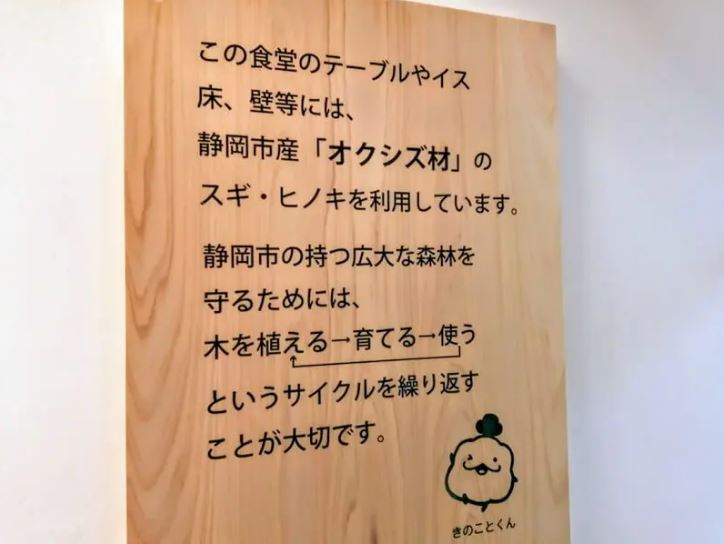 この食堂のテーブルやイス
床、壁等には、
静岡市産「オクシズ材」の
スギ・ヒノキを利用しています。
静岡市の持つ広大な森林を
守るためには、
木を植える→育てる→使う
というサイクルを繰り返す
ことが大切です。
きのことくん